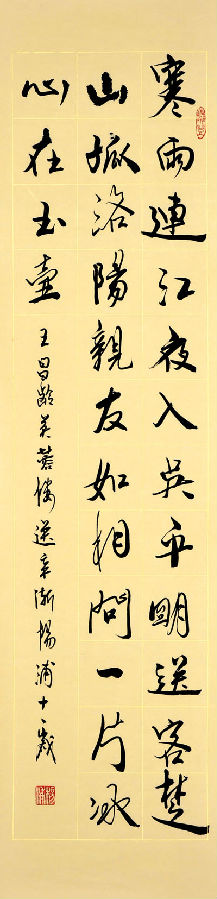 寒雨連江夜入吳平明送客楚
山孤洛陽親友如相問一片冰
心在玉壺
王昌齡芙蓉樓送辛漸楊浦十一歲